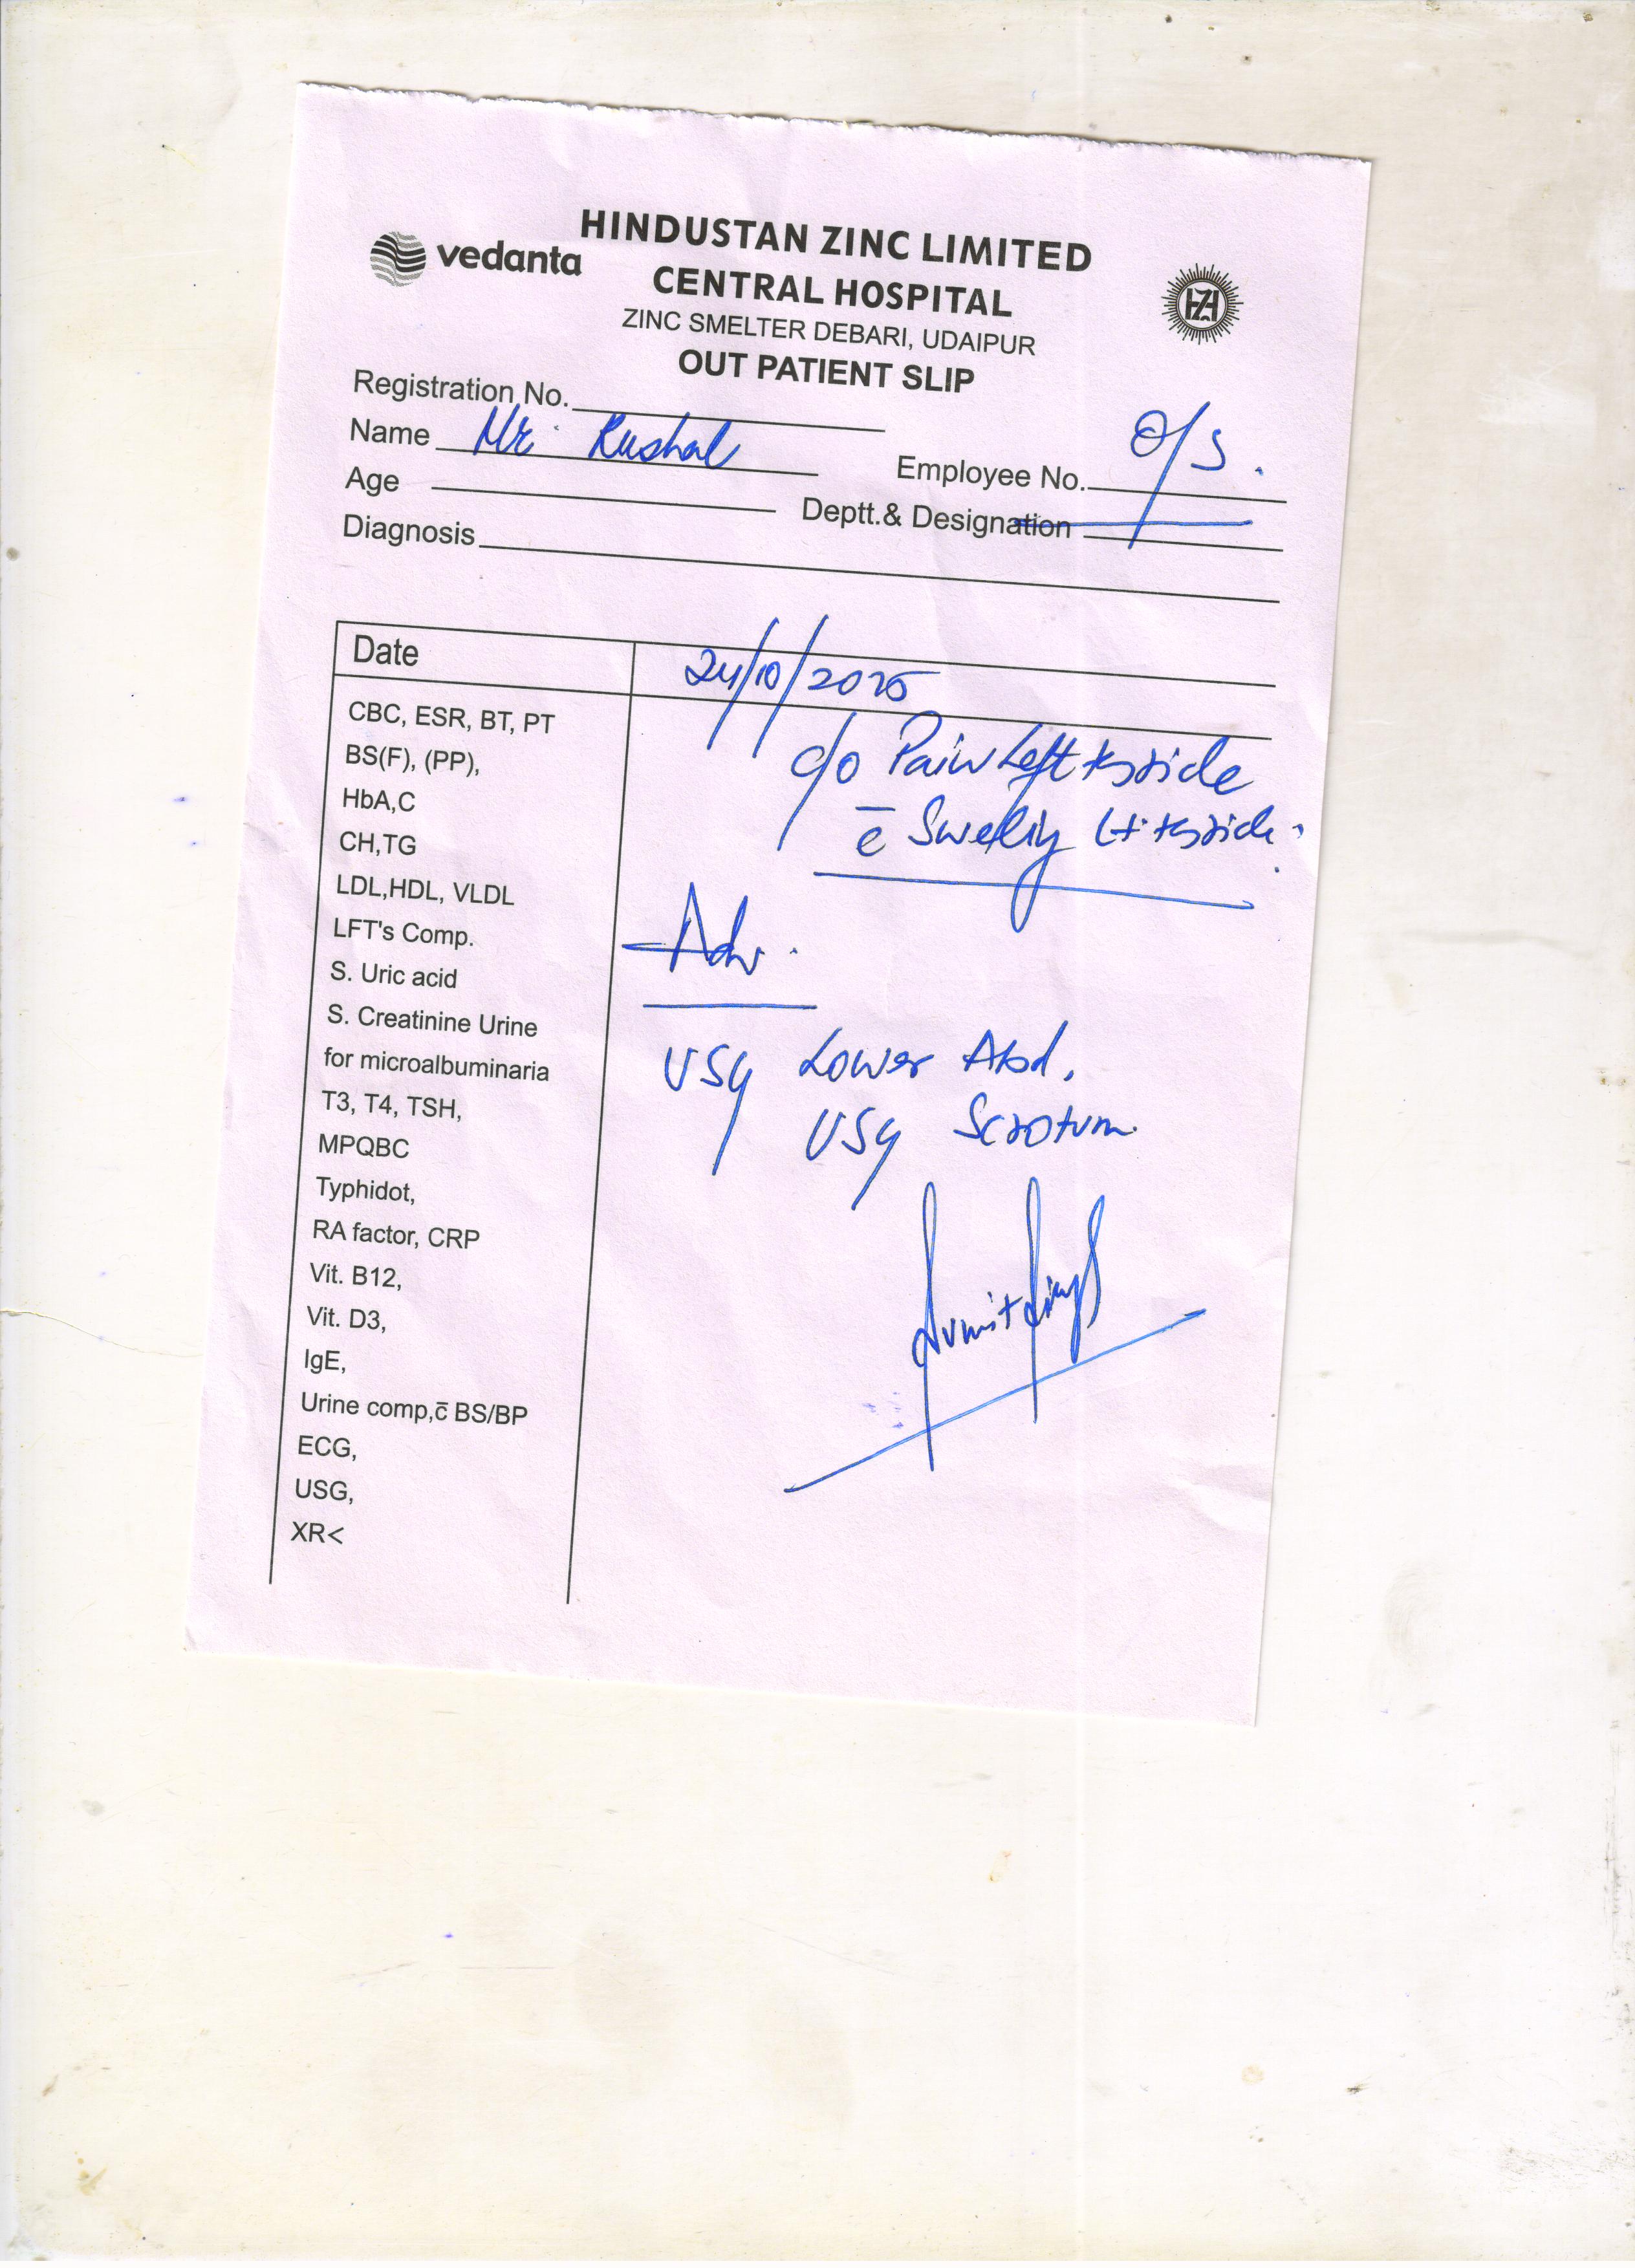 HINDUSTAN ZINC LIMITED
vedanta
CENTRAL HOSPITAL
HZL
ZINC SMELTER DEBARI, UDAIPUR
OUT PATIENT SLIP
Registration No.
Name Mr. Kushal
Employee No. O/S.
Age
Deptt.& Designation
Diagnosis
Date 24/10/2025
CBC, ESR, BT, PT
BS(F), (PP),
HbA,C
CH,TG
LDL,HDL, VLDL
LFT's Comp.
S. Uric acid
S. Creatinine Urine
for microalbuminaria
T3, T4, TSH,
MPQBC
Typhidot,
RA factor, CRP
Vit. B12,
Vit. D3,
IgE,
Urine comp,c̄ BS/BP
ECG,
USG,
XR<
c/o Pain Left
c̄ Swelling Lt.
Adv.
USG Lower Abd.
USG Scrotum.
Sumit Singh